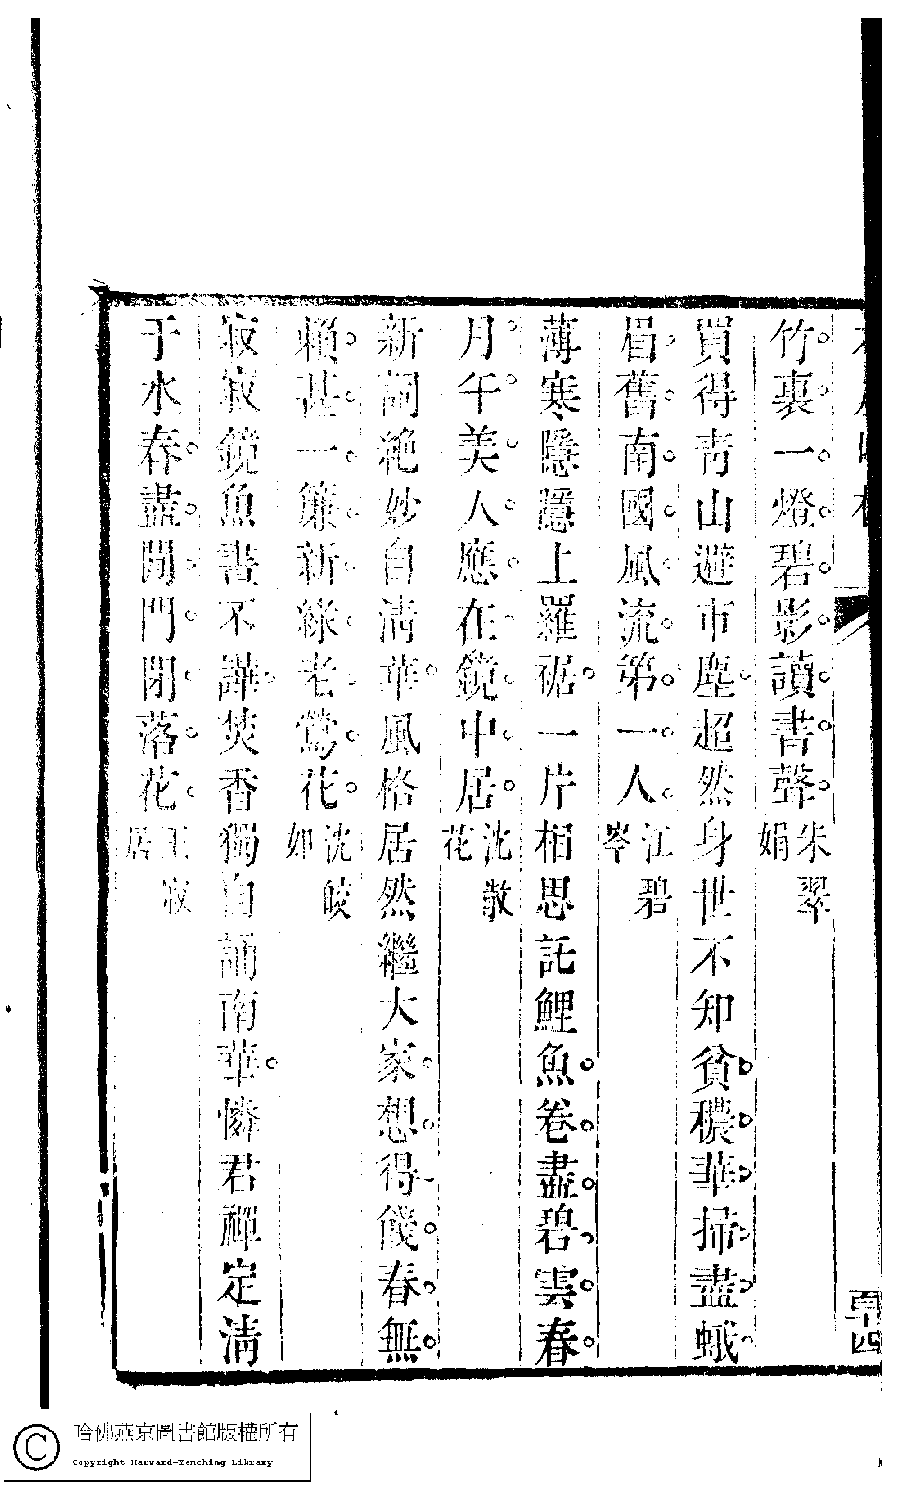 竹裏一燈碧影讀書聲朱翠娟
買得青山避市塵超然身世不知貧穠華掃盡蛾
眉舊南國風流第一人江碧岑
薄寒隱隱上羅裾一片相思託鯉魚卷盡碧雲春
月午美人應在鏡中居沈散花
新詞絶妙自清華風格居然繼大家想得餞春無
賴甚一簾新綠老鶯花沈皎如
寂寂鏡魚書不譁焚香獨自誦南華憐君禪定清
于水春盡閒門閉落花王寂居
百十四
哈佛燕京圖書館版權所有
Copyright Harvard-Yenching Library